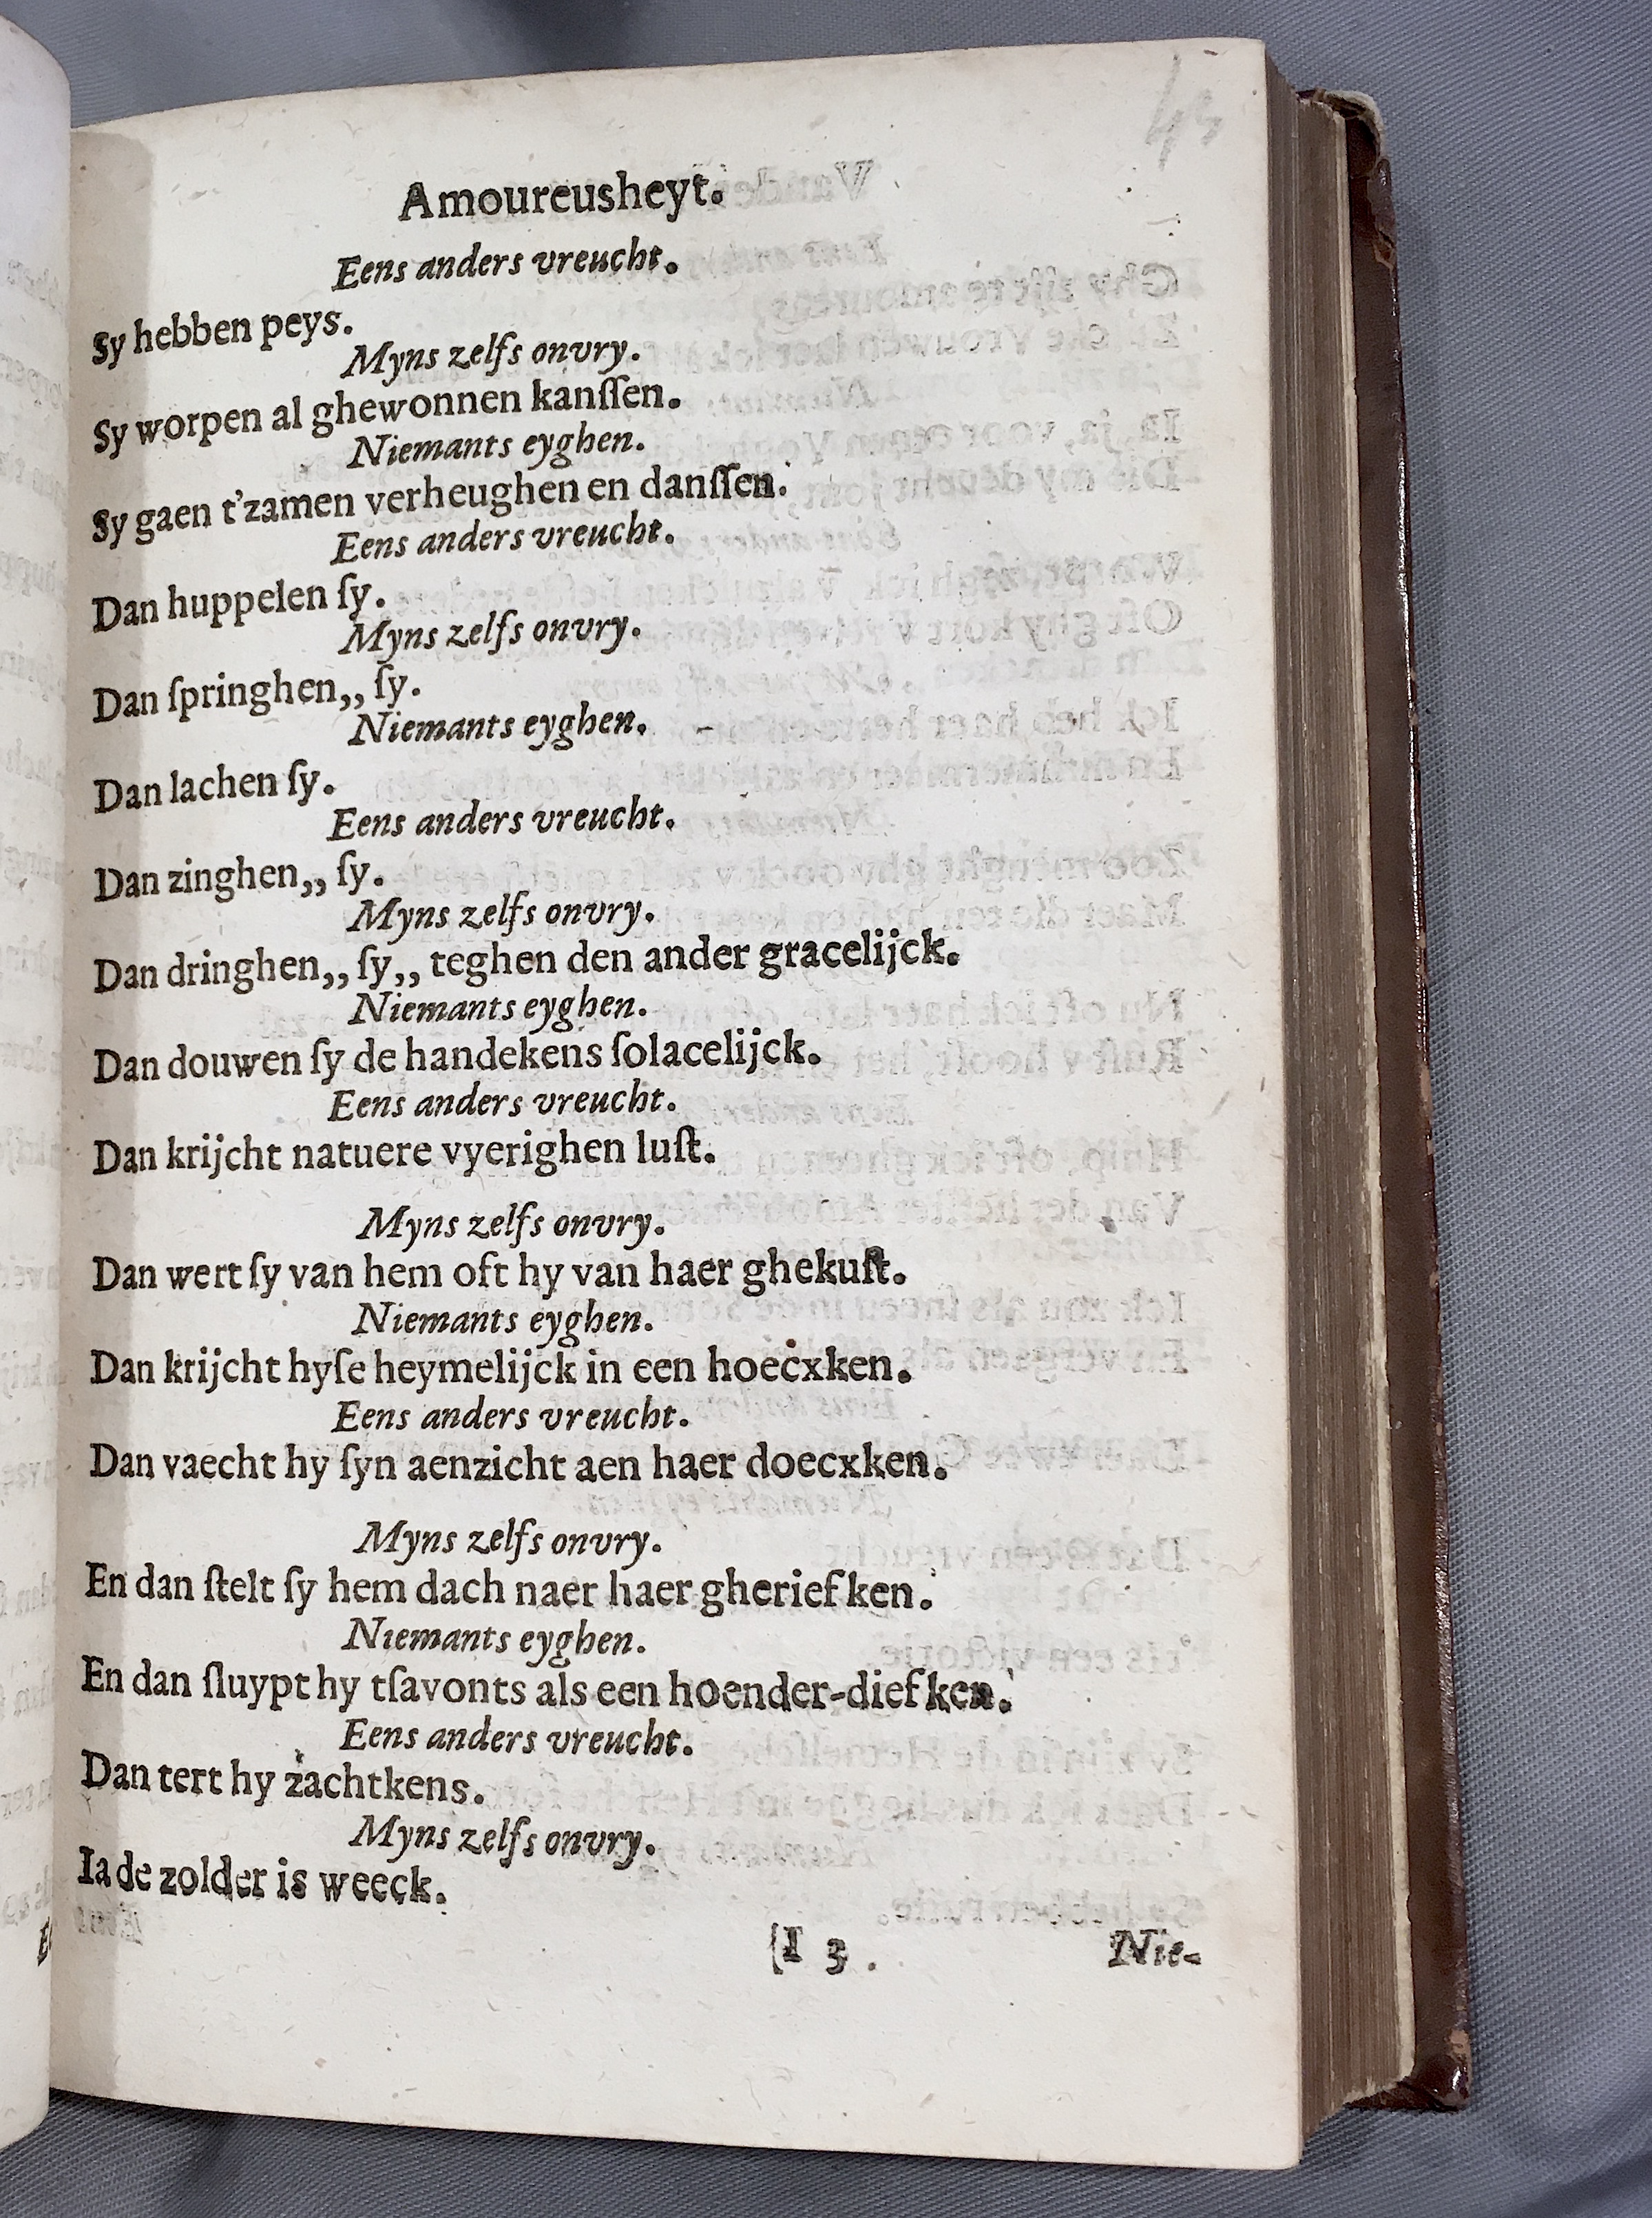 Amoureusheyt.
Eens anders vreucht.
Sy hebben peys.
Myns zelfs onvry.
Sy worpen al ghewonnen kanſſen.
Niemants eyghen.
Sy gaen t'zamen verheughen en danſſen.
Eens anders vreucht.
Dan huppelen ſy.
Myns zelfs onvry.
Dan ſpringhen,, ſy.
Niemants eyghen.
Dan lachen ſy.
Eens anders vreucht.
Dan zinghen,, ſy.
Myns zelfs onvry.
Dan dringhen,, ſy,, teghen den ander gracelijck.
Niemants eyghen.
Dan douwen ſy de handekens ſolacelijck.
Eens anders vreucht.
Dan krijcht natuere vyerighen luſt.
Myns zelfs onvry.
Dan wert ſy van hem oft hy van haer ghekuſt.
Niemants eyghen.
Dan krijcht hyſe heymelijck in een hoecxken.
Eens anders vreucht.
Dan vaecht hy ſyn aenzicht aen haer doecxken.
Myns zelfs onvry.
En dan ſtelt ſy hem dach naer haer gheriefken.
Niemants eyghen.
En dan ſluypt hy tſavonts als een hoender-diefken.
Eens anders vreucht.
Dan tert hy zachtkens.
Myns zelfs onvry.
Ia de zolder is weeck.
I 3. Nie-